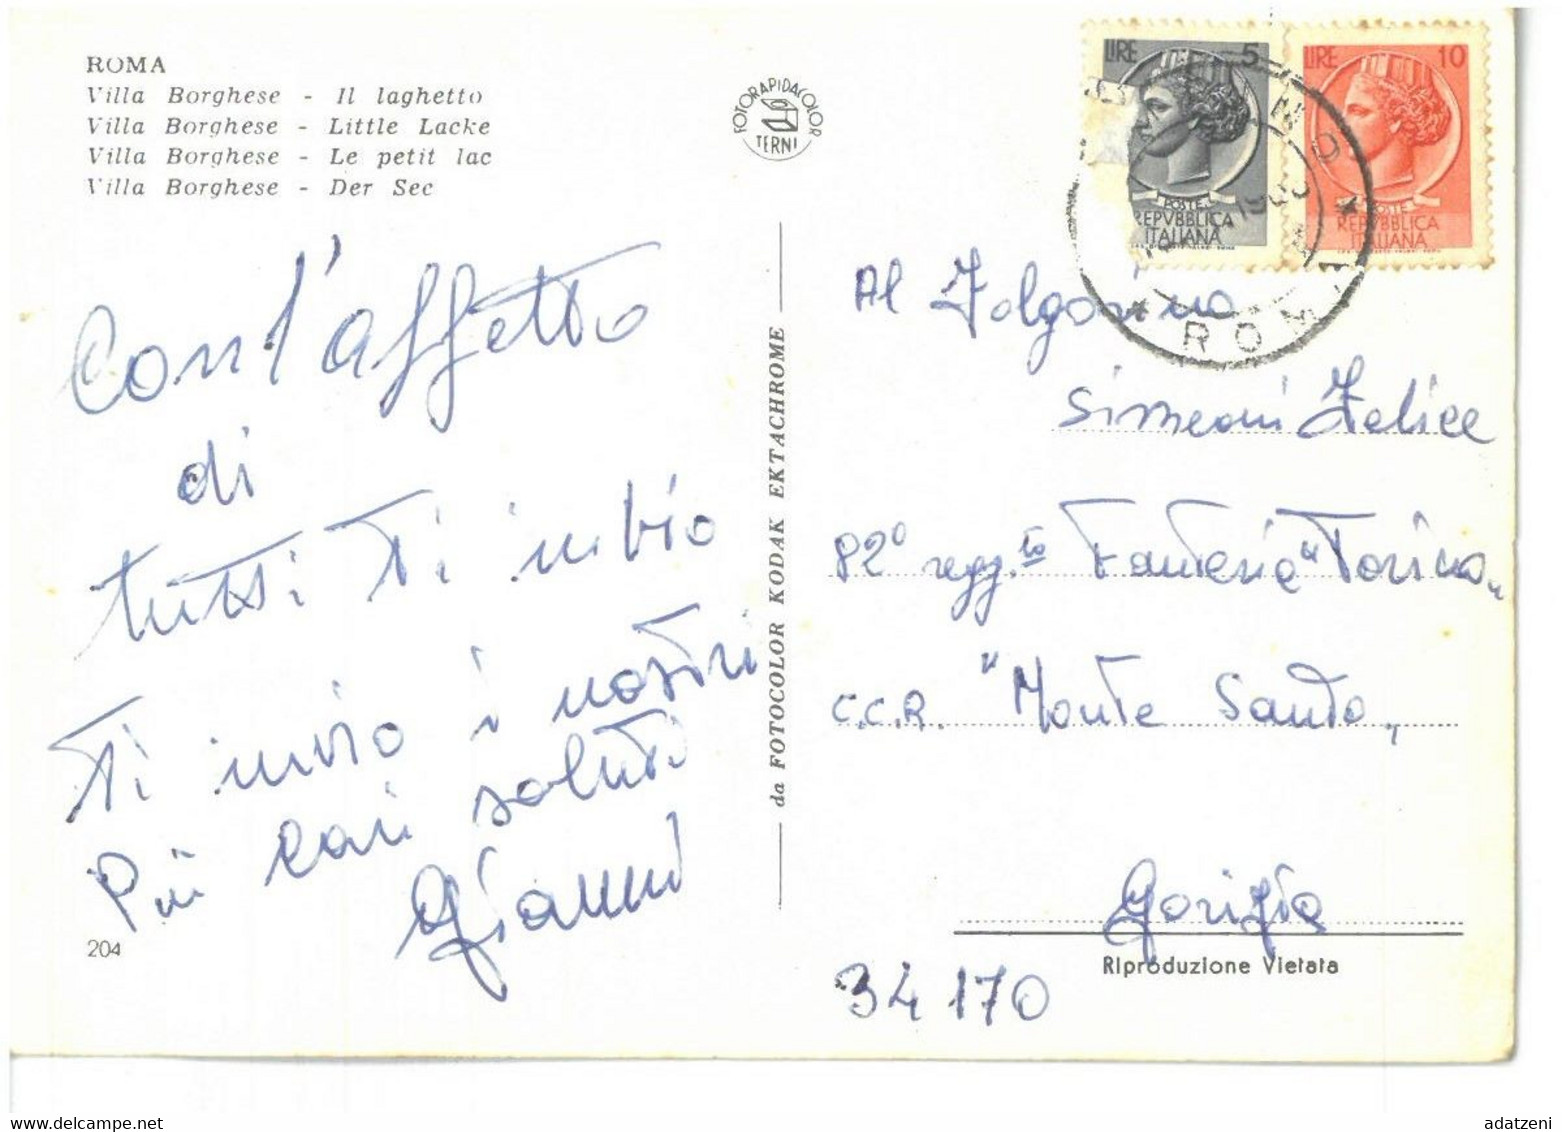 ROMA
Villa Borghese - Il laghetto
Villa Borghese - Little Lacke
Villa Borghese - Le petit lac
Villa Borghese - Der Sec
FOTORAPIDACOLOR
TERNI
LIRE 5
POSTE
REPVBBLICA
ITALIANA
LIRE 10
POSTE
REPVBBLICA
ITALIANA
ROMA
Con l'affetto
di
tutti ti invio
Ti invio i nostri
più cari saluti
Gianni
204
da FOTOCOLOR KODAK EKTACHROME
Al Folgorino
Simeoni Felice
82° regg.to Fanteria "Torino"
C.C.R. "Monte Santo"
Gorizia
Riproduzione Vietata
34170
adatzeni